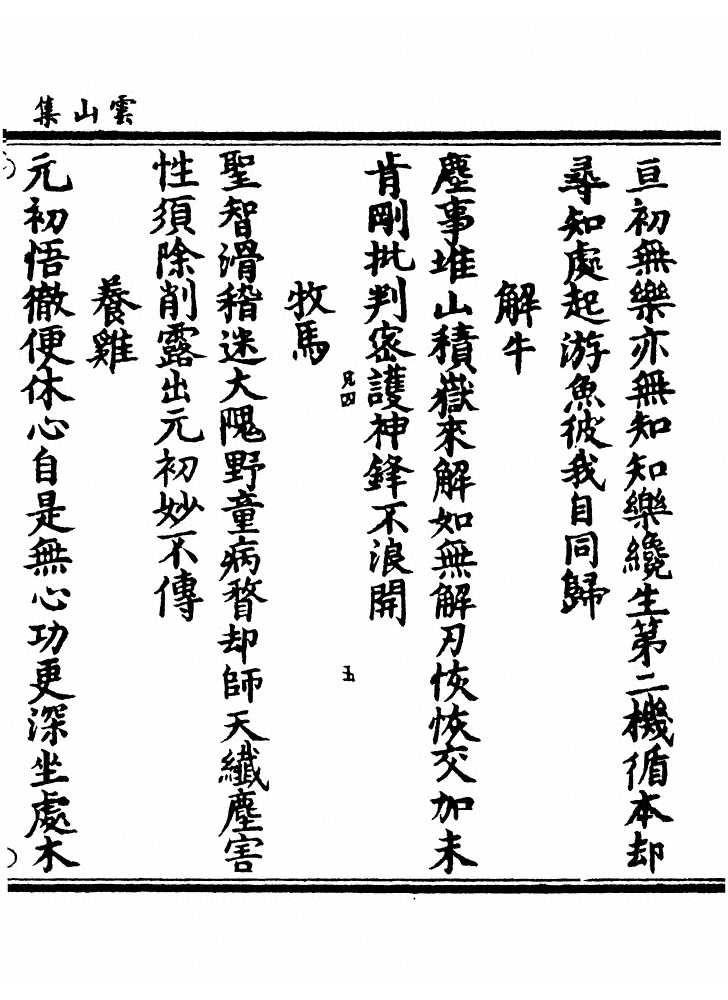 雲山集
亘初無樂亦無知知樂纔生第二機循本却
尋知處起游魚彼我自同歸
解牛
塵事堆山積嶽來解如無解刃恢恢交加未
肯剛批判密護神鋒不浪開
兄四
五
牧馬
聖智滑稽迷大隗野童病瞀却師天纖塵害
性須除削露出元初妙不傳
養雞
元初悟徹便休心自是無心功更深坐處木